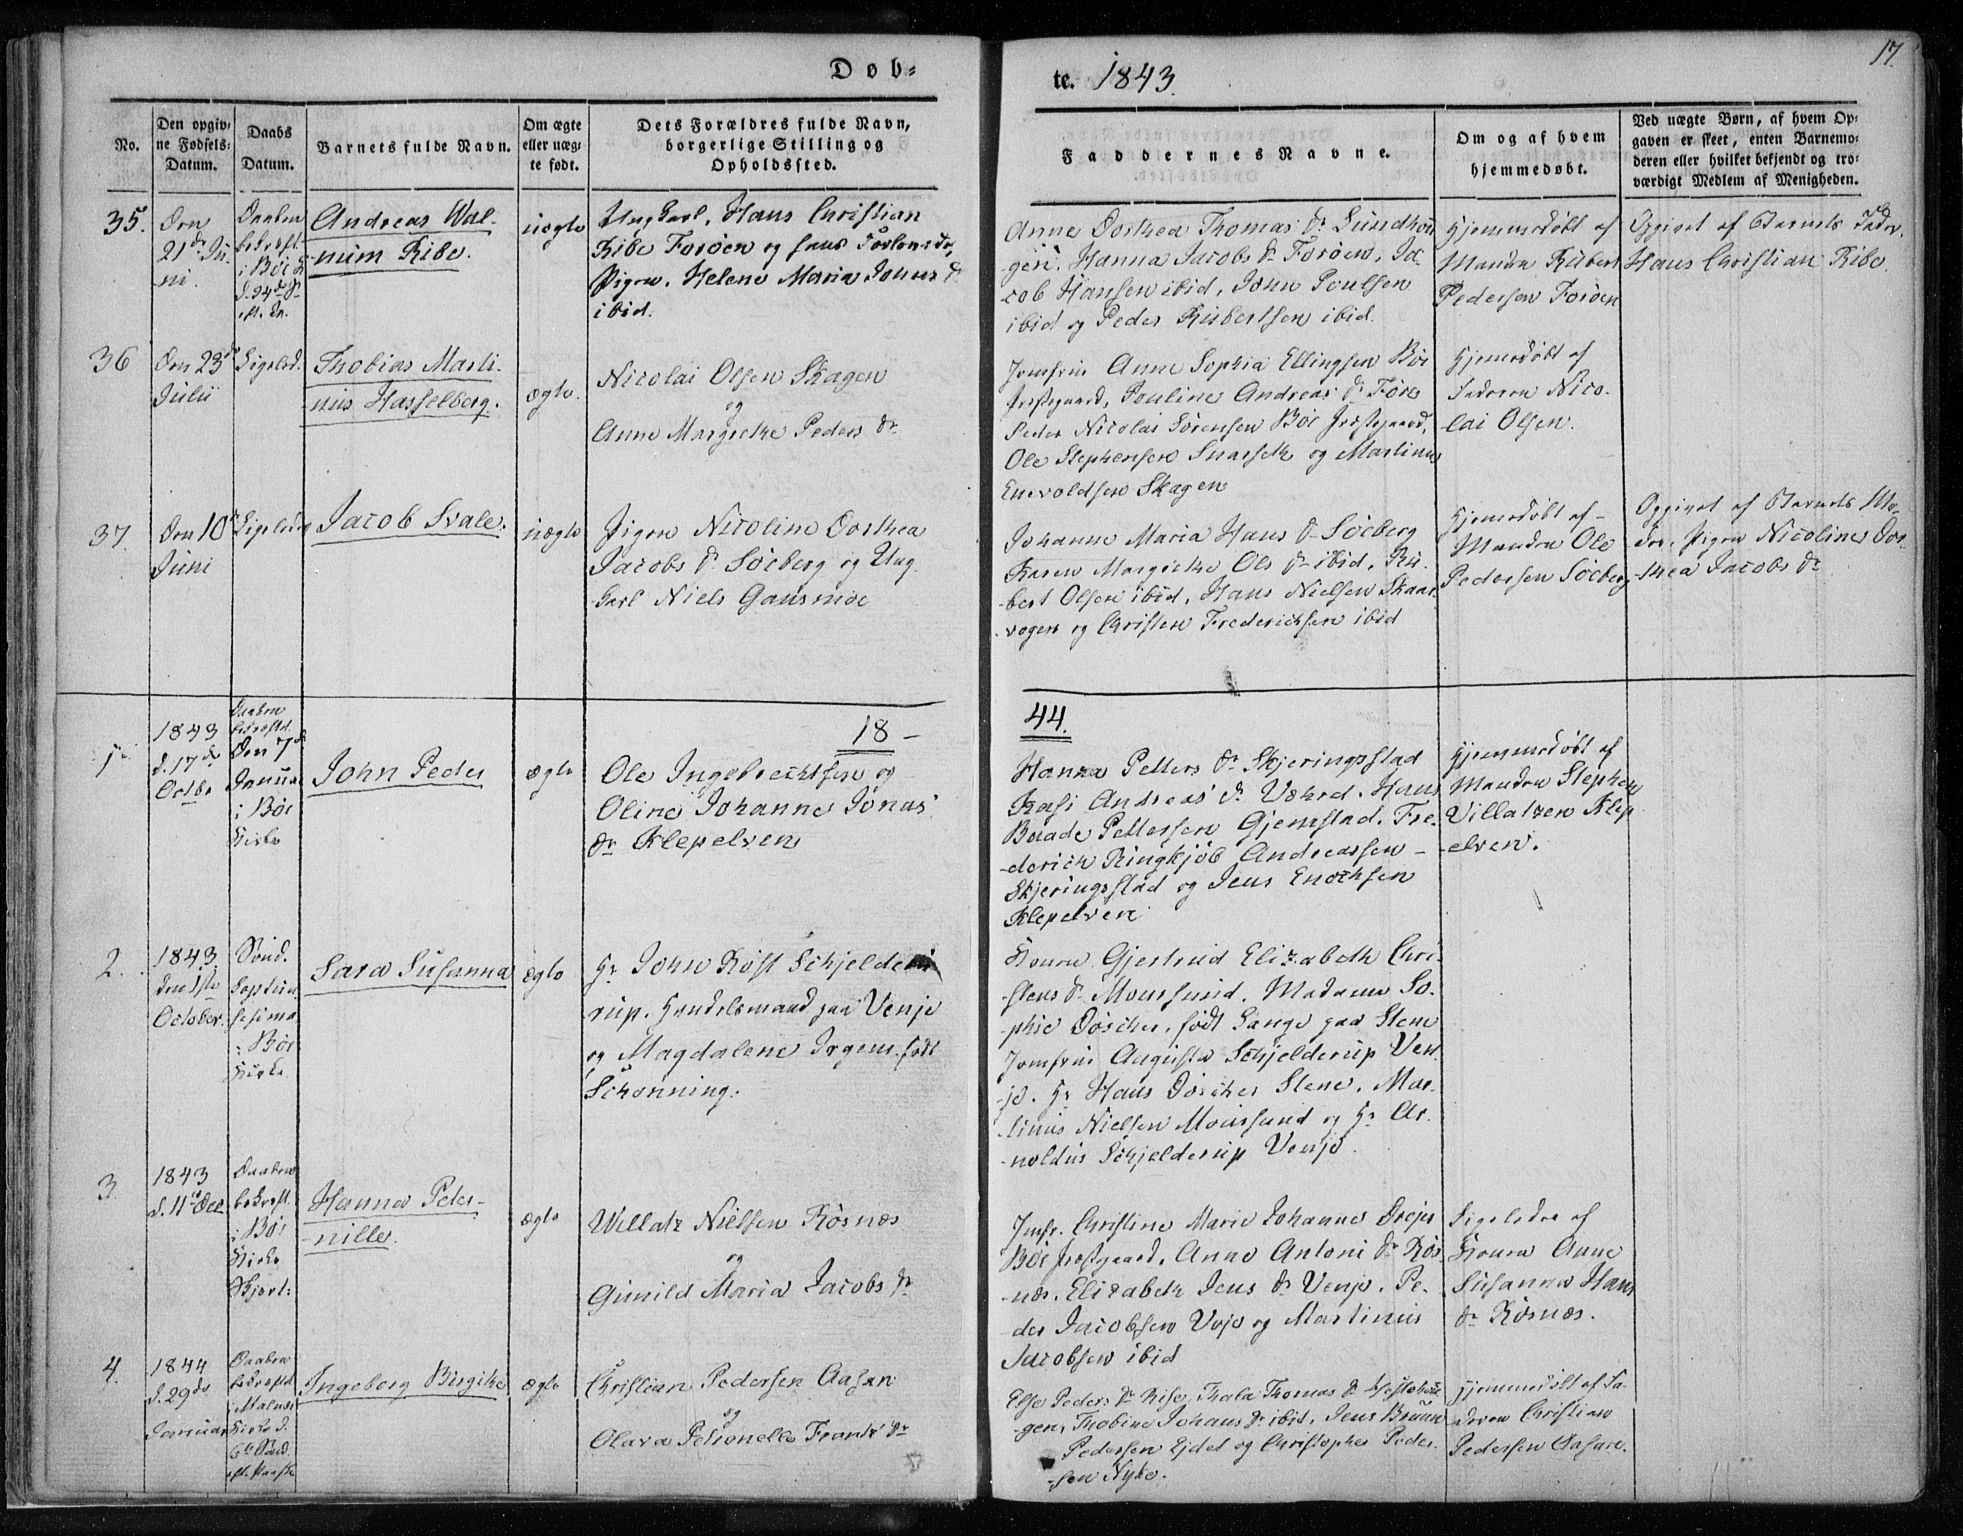 Døb-
te. 1843.
17.
No.
Den opgiv-
ne Fødsels-
Datum.
Daabs
Datum.
Barnets fulde Navn.
Om ægte
eller uæg-
te født.
Dets Forældres fulde Navn,
borgerlige Stilling og
Opholdssted.
Faddernes Navne.
Om og af hvem
hjemmedøbt.
Ved uægte Børn, af hvem Op-
gaven er skeet, enten Barnemo-
deren eller hvilket bekjendt og tro-
værdigt Medlem af Menigheden.
35.
Den
21de Ju-
ni.
Daaben
bekræft.
i Böe K.
Andreas Wal-
num Ribe.
uægte
Ungkarl, Hans Christian
Ribe Forøen og hans Forlovede,
Pigen, Helene Maria Jonas Dr
ibid.
Anne Dorthea Thomas Dr
Hanna Jacobs Dr Forøen, Ja-
cob Hansen ibid, John Poulsen
ibid og Peder Rubertsen ibid.
Hjemmedöbt af
Manden Rubert
Pedersen Forøen
Opgivet af Barnets Fader
Hans Christian Ribe.
36
Den 23de
Julii
Ligeled.
Thobias Marti-
nus Hasselberg.
ægte.
Nicolai Olsen Skagen
og
Anne Margrethe Peders Dr
Jomfrue Anne Sophia Ellingsen Böe
Præstegaard, Pouline Andreas Dr Före
Peder Nicolai Sörensen Böe Præstegaard,
Ole Stephensen og Martinus
Enevoldsen Skagen
Hjemedöbt af
Faderen Nico-
lai Olsen.
37.
Den 10de
Juni
Ligeledes
Jacob Svale.
uægte
Pigen Nicoline Dorthea
Jacobs Dr Söeberg og Ung-
karl Niels Gausmoe
Johanne Maria Hans Dr Söeberg
Karen Margrethe Ols Dr ibid, Ru-
bert Olsen ibid, Hans Nielsen Skaar-
vogen og Christen Frederichsen ibid
Hjemedöbt af
Manden Ole
Pedersen Söeberg
Opgivet af Barnets Mo-
der, Pigen Nicoline Dor-
thea Jacobs Dr
18 -
44.
1.
1843
d. 17de
Octbr
Daaben
bekræftet
Den 7de
Januar
i Böe
Kirke
John Peder
ægte
Ole Ingebrechtsen og
Oline Johanne Jonas
Dr Klepelven
Hanna Petters Dr Skjeringsstad
Andreas Dr Hans
Pettersen Gjemstad, Fre-
derich Ringkjöb Andreassen
Skjeringsstad og Jens Enochsen
Klepelven
Hjemmedöbt af
Manden Stephen
Villatzen Klep-
elven.
2.
1843
den 1ste
October.
Sönd.
Septua-
gesima
i Böe
Kirke
Sara Susanna
ægte
Hr John Röst Schjelde-
rup, Handelsmand paa Venje
og Magdalene Irgens, født
Schonning.
Konen Gjertrud Elizabeth Chri-
stens Dr Moursund, Madame So-
phie Döscher, født Lange paa Stene
Jomfrue Augusta Schjelderup Ven-
je. Hr Hans Döscher Stene, Mar-
tinus Nielsen Moursund og Hr Ar-
noldus Schjelderup Venje
3.
1843
d. 11te Dec
Daaben
bekræft.
i Böe
Kirke
Hanna Peder-
nille.
ægte
Willatz Nielsen Rösnes
og
Gunild Maria Jacobs Dr
Jmfr. Christine Marie Johanne Drejer
Böe Præstgaard, Anne Antoni Dr Rös-
nes, Elizabeth Jens Dr Venje, Pe-
der Jacobsen og Martinus
Jacobsen ibid
Ligeledes af
Konen Anne
Susanna Hans
Dr Rösnes.
4.
1844
d. 29de
Januar
Daaben
bekræftet
i Malnes
Kirke d.
Ingeborg Birgithe
ægte
Christian Pedersen Aasen
og
Olava Petronelle Frants Dr
Else Peders Dr Rise, Thala Thomas Dr
Thobine Johans Dr ibid, Jens Bruun
Pedersen Ejdet og Christopher Peder-
sen Nyke.
Hjemmedöbt af Fa-
deren Christian
Pedersen Aasen.